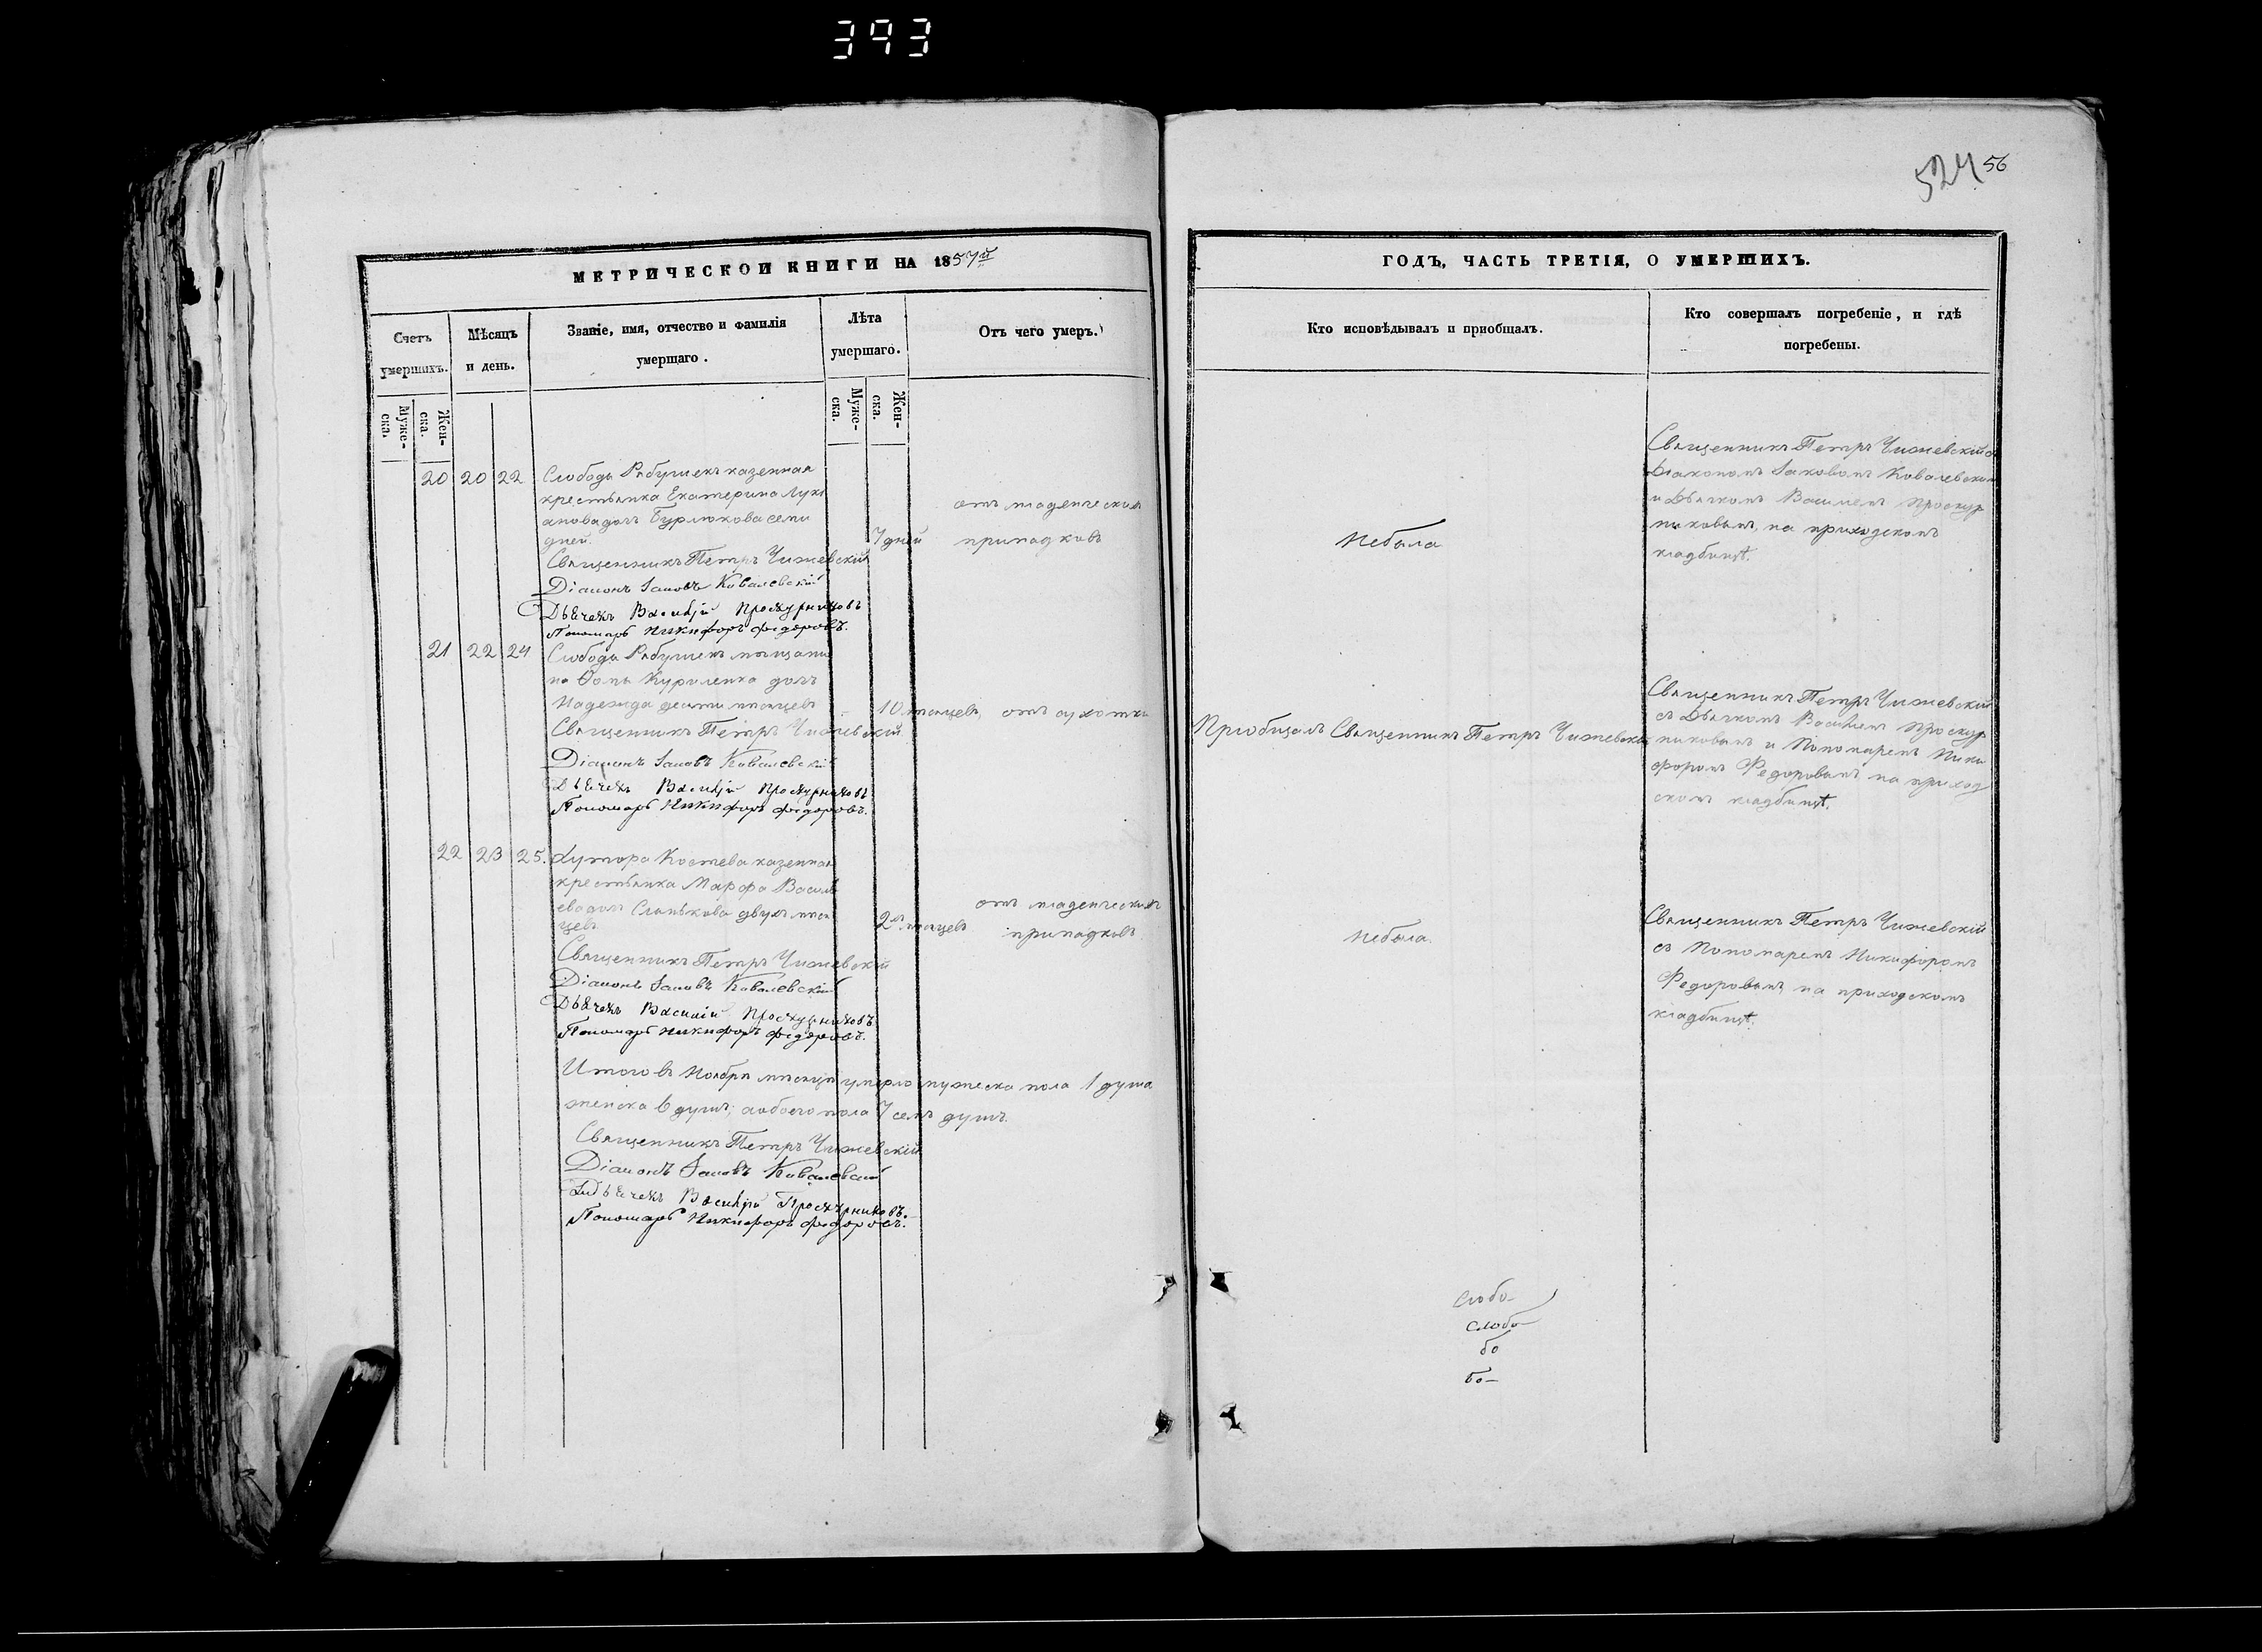 393
524 56
МЕТРИЧЕСКОЙ КНИГИ НА 1857й
Счетъ умершихъ.
Мѣсяцъ и день.
Званіе, имя, отчество и фамилія умершаго.
Лѣта умершаго.
Отъ чего умеръ.
Муже-ска.
Жен-ска.
Муже-ска.
Жен-ска.
20 20 22 Слободы Рябушекъ казенная
крестьянка Екатерина Лукі
анова дочь Бурлюкова семи
дней.
7 дней
отъ младенческихъ
припадковъ
Священникъ Петръ Чижевскій
Діаконъ Іаковъ Ковалевскій
Дьячекъ Василій Проскурниковъ
Пономарь Никифоръ Федоровъ.
21 22 24 Слободы Рябушекъ мѣщани
на Ѳомы Куриленка дочь
Надежда десяти мѣсяцевъ
10 мѣсяцевъ, отъ сухотки
Священникъ Петръ Чижевскій
Діаконъ Іаковъ Ковалевскій
Дьячекъ Василій Проскурниковъ
Пономарь Никифоръ Федоровъ.
22 23 25. Хутора Костева казенная
крестьянка Марфа Василь
ева дочь двухъ мѣся
цевъ
2хъ мѣсяцевъ
отъ младенческихъ
припадковъ
Священникъ Петръ Чижевскій
Діаконъ Іаковъ Ковалевскій
Дьячекъ Василій Проскурниковъ
Пономарь Никифоръ Федоровъ.
Итого въ Ноябрѣ мѣсяцѣ умерло мужеска пола 1 душа
женска 6 душъ; а обоего пола 7 семь душъ.
Священникъ Петръ Чижевскій
Діаконъ Іаковъ Ковалевскій
Дьячекъ Василій Проскурниковъ.
Пономарь Никифоръ Федоровъ.
ГОДЪ, ЧАСТЬ ТРЕТІЯ, О УМЕРШИХЪ.
Кто исповѣдывалъ и приобщалъ.
Кто совершалъ погребеніе, и гдѣ
погребены.
Небыла
Священникъ Петръ Чижевскій съ
Діакономъ Іаковомъ Ковалевскимъ
и Дьячкомъ Василіемъ Проскур
никовымъ, на приходскомъ
кладбищѣ.
Приобщалъ Священникъ Петръ Чижевскій
Священникъ Петръ Чижевскій
съ Дьячкомъ Василіемъ Проскур
никовымъ и Пономаремъ Ники
форомъ Федоровымъ на приход
скомъ кладбищѣ.
Небыла.
Священникъ Петръ Чижевскій
съ Пономаремъ Никифоромъ
Федоровымъ, на приходскомъ
кладбищѣ.
Слобо-
Слобо-
бо
бо-